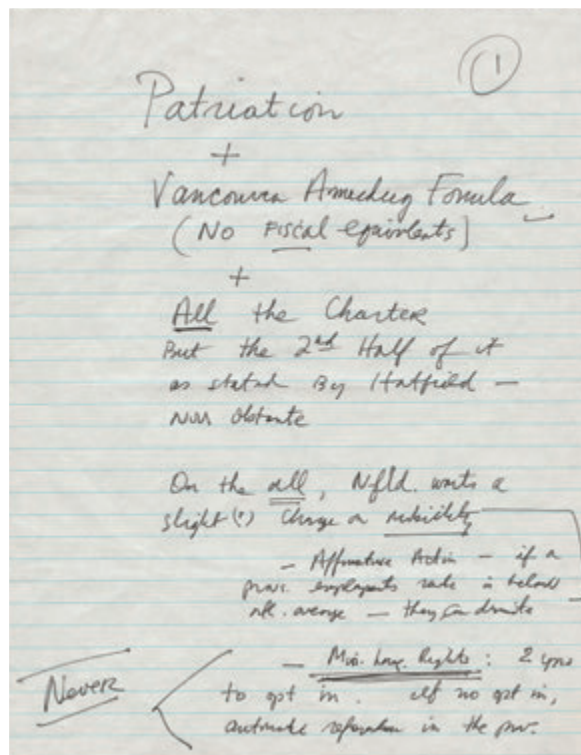 1
Patriation
+
Vancouver Amending Formula
(No Fiscal equivalents)
+
All the Charter
But the 2nd Half of it
as stated By Hatfield –
non obstante
On the all, Nfld. wants a
slight (?) change on mobility
– Affirmative Action – if a
prov. employment rate is below
natl. average – they can
– Min. Lang. Rights: 2 years
to opt in. If no opt in,
automatic referendum in the prov.
Never